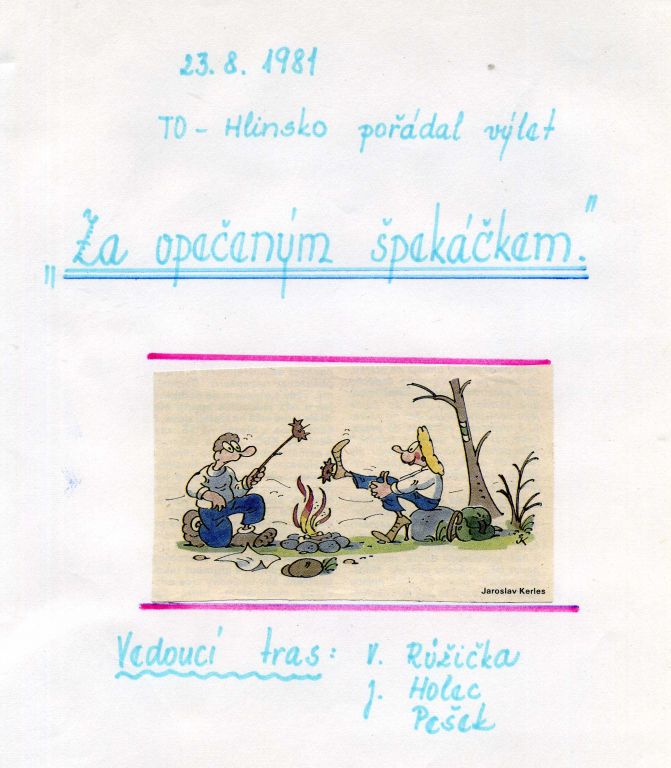 23. 8. 1981
TO - Hlinsko pořádal výlet
„Za opečeným špekáčkem."
Jaroslav Kerles
Vedoucí tras: V. Růžička
J. Holec
Pešek